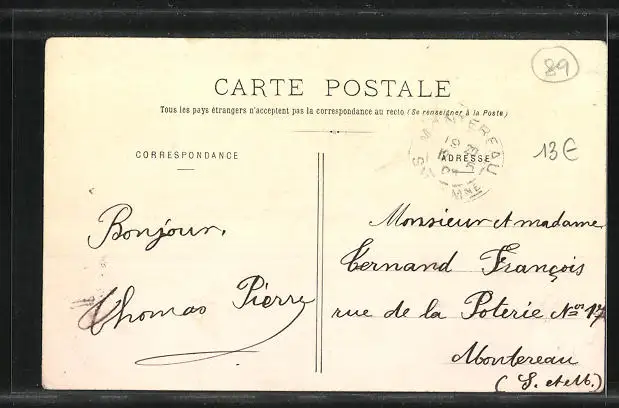 89
CARTE POSTALE
Tous les pays étrangers n'acceptent pas la correspondance au recto (Se renseigner à la Poste)
MONTEREAU
MNE
13€
CORRESPONDANCE
ADRESSE
Bonjour,
Thomas Pierre
Monsieur et madame
Fernand François
rue de la Poterie Nos 17
Montereau
(S. et M.)